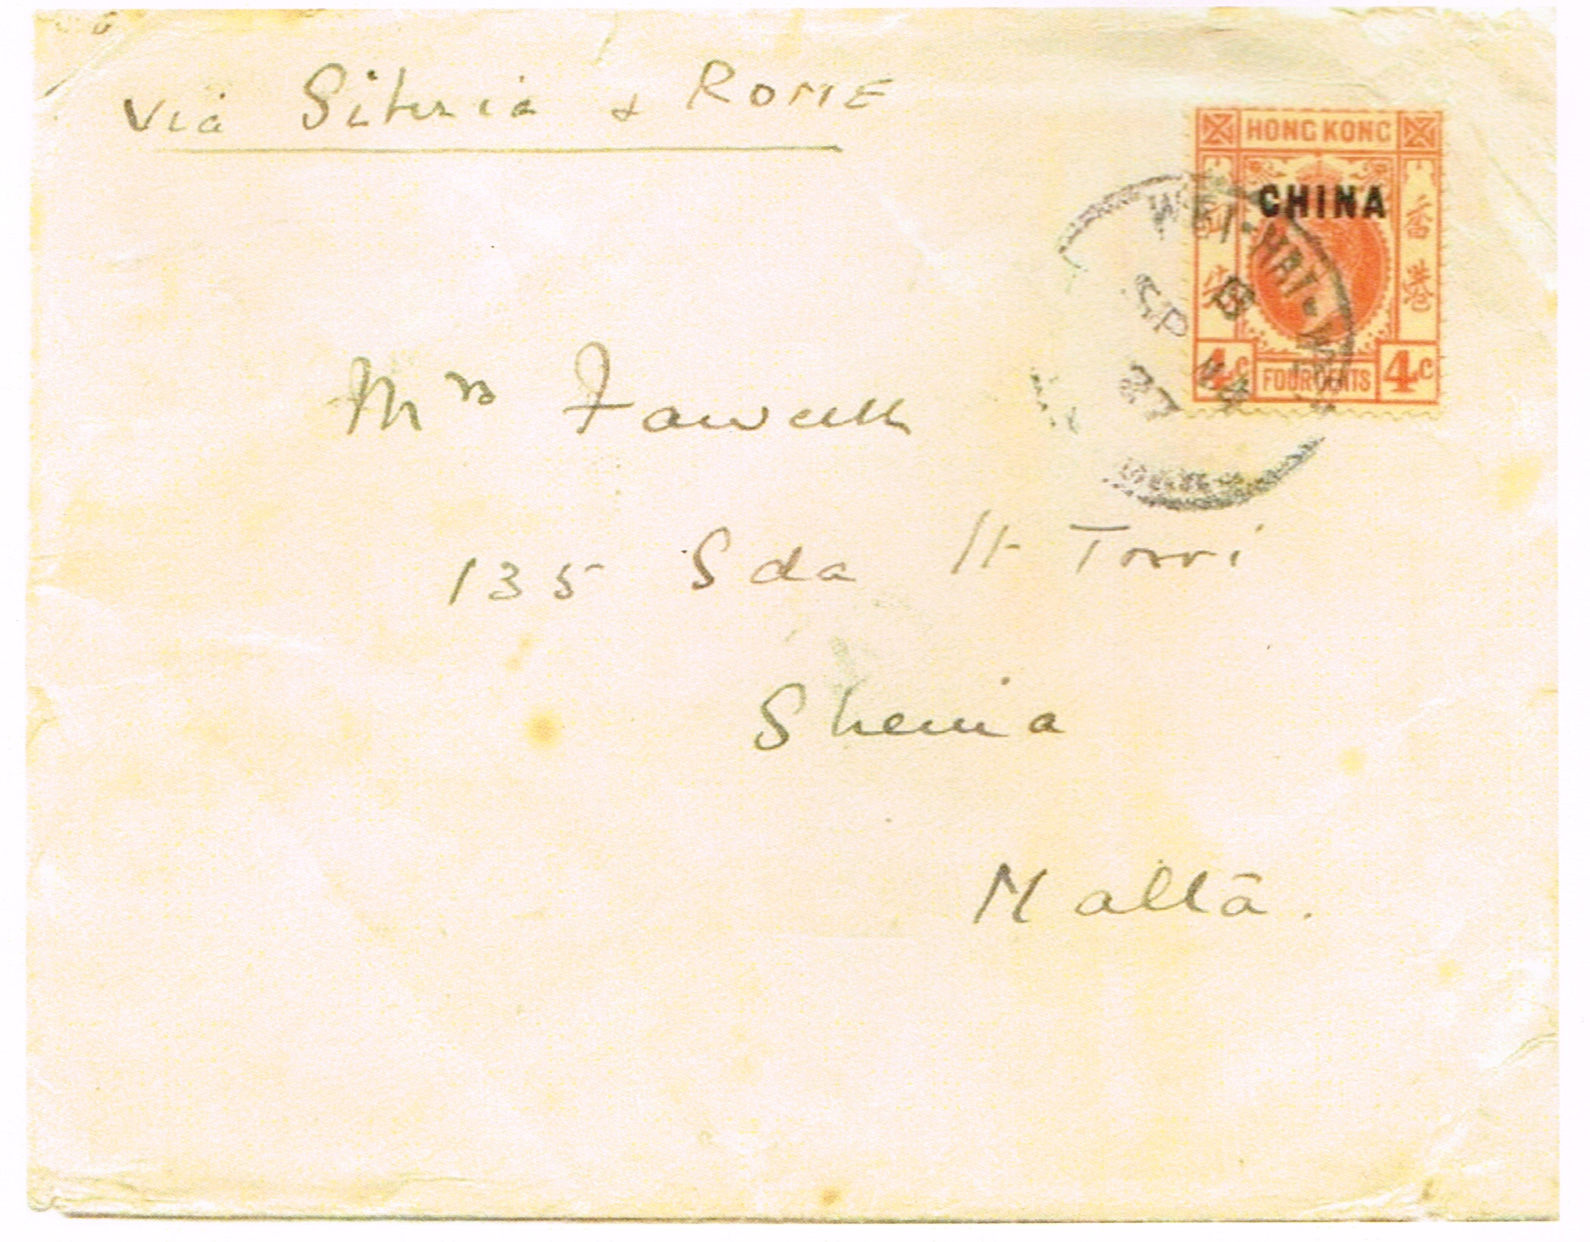 Via Siberia & ROME
HONG KONG
CHINA
香港
4c
FOUR CENTS
4c
WEI-HAI-WEI
B
SP 14
27
Mrs Fawcett
135 Sda It Torri
Sliema
Malta.